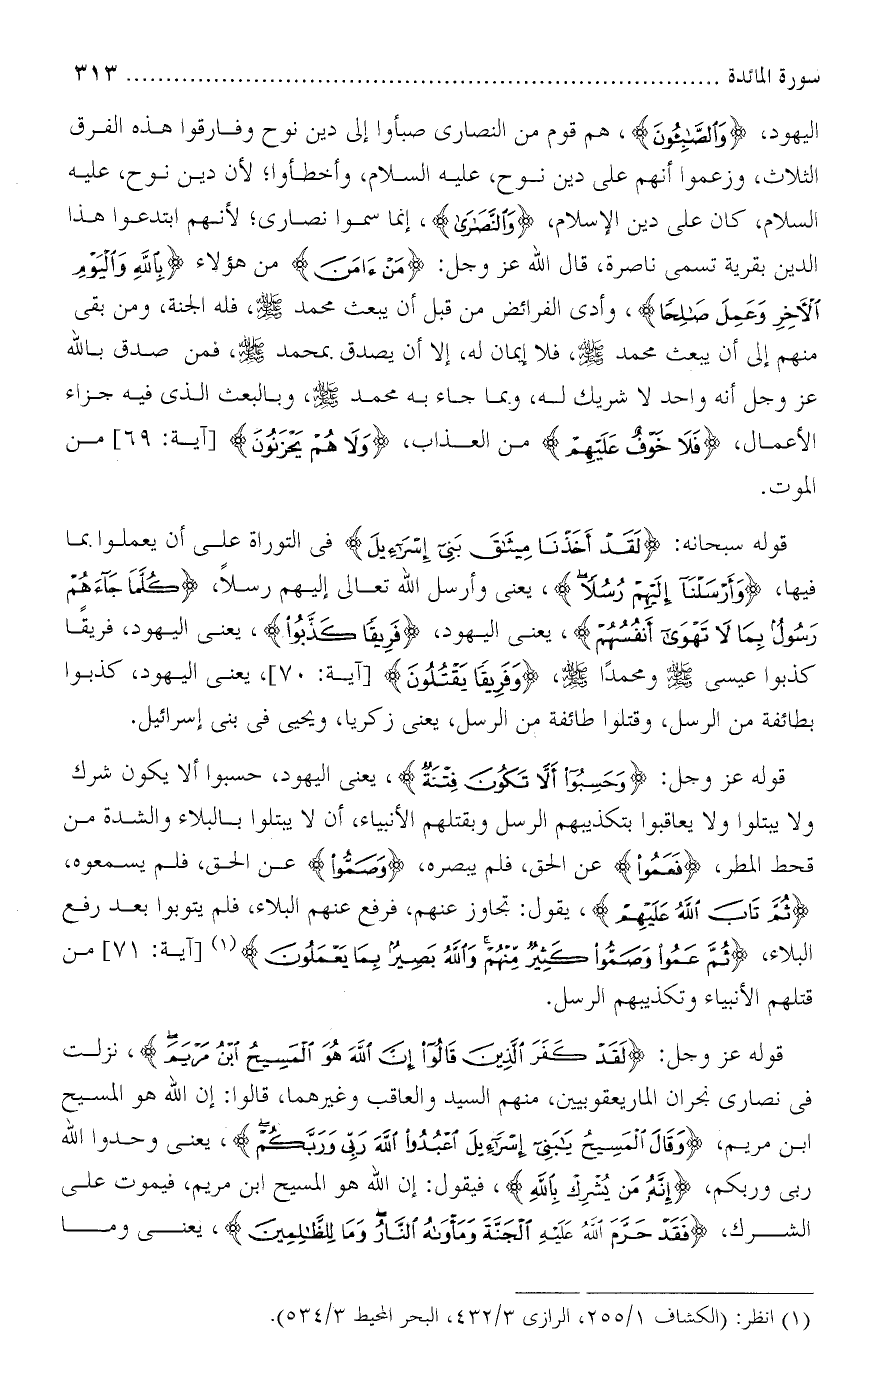 سورة المائدة ........................................................................ ٣١٣
اليهود، ﴿وَٱلصَّٰبِـُٔونَ﴾، هم قوم من النصارى صبأوا إلى دين نوح وفارقوا هذه الفرق
الثلاث، وزعموا أنهم على دين نوح، عليه السلام، وأخطأوا؛ لأن دين نوح، عليه
السلام، كان على دين الإسلام، ﴿وَٱلنَّصَٰرَىٰ﴾، إنما سموا نصارى؛ لأنهم ابتدعوا هذا
الدين بقرية تسمى ناصرة، قال الله عز وجل: ﴿مَنْ ءَامَنَ﴾ من هؤلاء ﴿بِٱللَّهِ وَٱلْيَوْمِ
ٱلْءَاخِرِ وَعَمِلَ صَٰلِحًا﴾، وأدى الفرائض من قبل أن يبعث محمد ﷺ، فله الجنة، ومن بقى
منهم إلى أن يبعث محمد ﷺ، فلا إيمان له، إلا أن يصدق بمحمد ﷺ، فمن صدق بالله
عز وجل أنه واحد لا شريك له، وبما جاء به محمد ﷺ، وبالبعث الذى فيه جزاء
الأعمال، ﴿فَلَا خَوْفٌ عَلَيْهِمْ﴾ من العذاب، ﴿وَلَا هُمْ يَحْزَنُونَ﴾ [آية: ٦٩] من
الموت.
قوله سبحانه: ﴿لَقَدْ أَخَذْنَا مِيثَٰقَ بَنِىٓ إِسْرَٰٓءِيلَ﴾ فى التوراة على أن يعملوا بما
فيها، ﴿وَأَرْسَلْنَآ إِلَيْهِمْ رُسُلًا ۖ﴾، يعنى وأرسل الله تعالى إليهم رسلاً، ﴿كُلَّمَا جَآءَهُمْ
رَسُولٌۢ بِمَا لَا تَهْوَىٰٓ أَنفُسُهُمْ﴾، يعنى اليهود، ﴿فَرِيقًا كَذَّبُوا۟﴾، يعنى اليهود، فريقًا
كذبوا عيسى ﷺ ومحمدًا ﷺ، ﴿وَفَرِيقًا يَقْتُلُونَ﴾ [آية: ٧٠]، يعنى اليهود، كذبوا
بطائفة من الرسل، وقتلوا طائفة من الرسل، يعنى زكريا، ويحيى فى بنى إسرائيل.
قوله عز وجل: ﴿وَحَسِبُوٓا۟ أَلَّا تَكُونَ فِتْنَةٌ﴾، يعنى اليهود، حسبوا ألا يكون شرك
ولا يبتلوا ولا يعاقبوا بتكذيبهم الرسل وبقتلهم الأنبياء، أن لا يبتلوا بالبلاء والشدة من
قحط المطر، ﴿فَعَمُوا۟﴾ عن الحق، فلم يبصره، ﴿وَصَمُّوا۟﴾ عن الحق، فلم يسمعوه،
﴿ثُمَّ تَابَ ٱللَّهُ عَلَيْهِمْ﴾، يقول: تجاوز عنهم، فرفع عنهم البلاء، فلم يتوبوا بعد رفع
البلاء، ﴿ثُمَّ عَمُوا۟ وَصَمُّوا۟ كَثِيرٌ مِّنْهُمْ ۚ وَٱللَّهُ بَصِيرٌۢ بِمَا يَعْمَلُونَ﴾(١) [آية: ٧١] من
قتلهم الأنبياء وتكذيبهم الرسل.
قوله عز وجل: ﴿لَقَدْ كَفَرَ ٱلَّذِينَ قَالُوٓا۟ إِنَّ ٱللَّهَ هُوَ ٱلْمَسِيحُ ٱبْنُ مَرْيَمَ ۖ﴾، نزلت
فى نصارى نجران الماريعقوبيين، منهم السيد والعاقب وغيرهما، قالوا: إن الله هو المسيح
ابن مريم، ﴿وَقَالَ ٱلْمَسِيحُ يَٰبَنِىٓ إِسْرَٰٓءِيلَ ٱعْبُدُوا۟ ٱللَّهَ رَبِّى وَرَبَّكُمْ ۖ﴾، يعنى وحدوا الله
ربى وربكم، ﴿إِنَّهُۥ مَن يُشْرِكْ بِٱللَّهِ﴾، فيقول: إن الله هو المسيح ابن مريم، فيموت على
الشرك، ﴿فَقَدْ حَرَّمَ ٱللَّهُ عَلَيْهِ ٱلْجَنَّةَ وَمَأْوَىٰهُ ٱلنَّارُ ۖ وَمَا لِلظَّٰلِمِينَ﴾، يعنى وما
(١) انظر: (الكشاف ٢٥٥/١، الرازى ٤٣٢/٣، البحر المحيط ٥٣٤/٣).